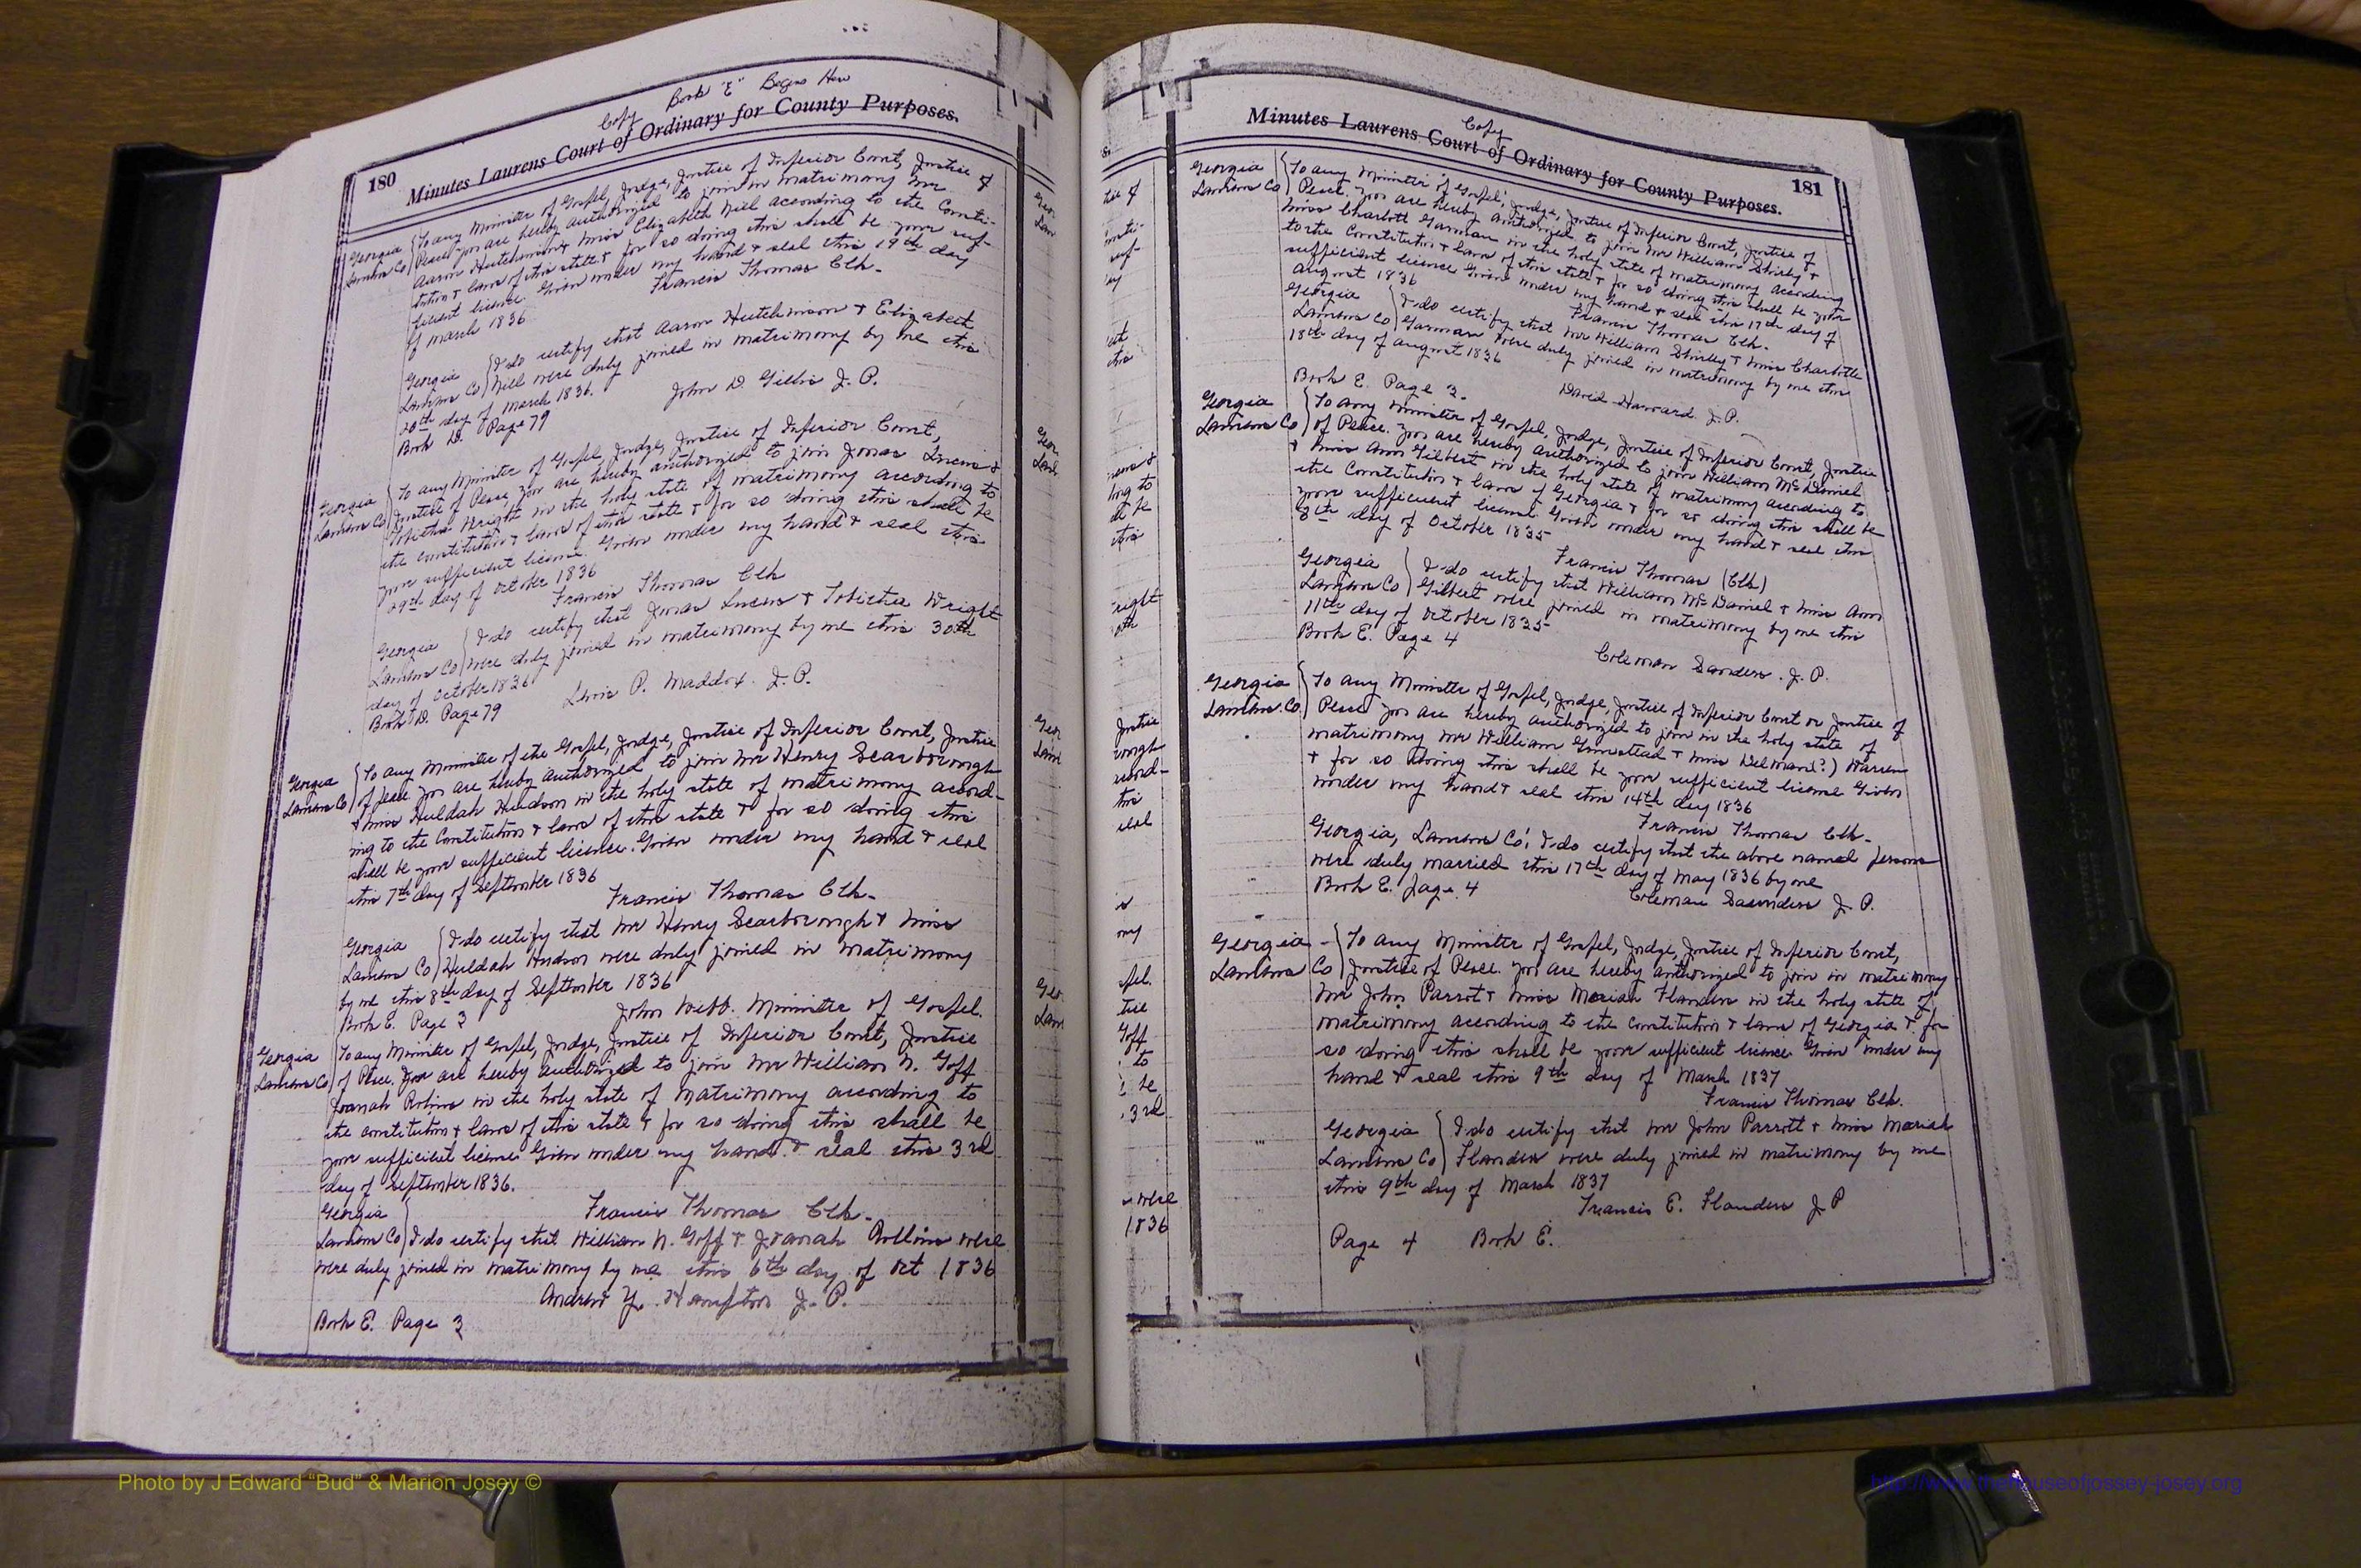 Book "E" Begins Here
Copy
180 Minutes Laurens Court of Ordinary for County Purposes.
Georgia To any Minister of Gospel, Judge, Justice of Inferior Court, Justice of
Laurens Co Peace you are hereby authorized to join in matrimony Mr
Aaron Hutchinson & Miss Elizabeth Niel according to the Consti-
tution & laws of this state & for so doing this shall be your suf-
ficient license. Given under my hand & seal this 19th day
of March 1836
Francis Thomas Clk.
Georgia I do certify that Aaron Hutchinson & Elizabeth
Laurens Co Niel were duly joined in matrimony by me this
20th day of March 1836.
John D. Gillis J. P.
Book D. Page 79
Georgia To any Minister of Gospel, Judge, Justice of Inferior Court,
Laurens Co Justice of Peace, you are hereby authorized to join Jonas Lucus &
Tobitha Wright in the holy state of matrimony according to
the constitution & laws of this state & for so doing this shall be
your sufficient license. Given under my hand & seal this
29th day of October 1836
Francis Thomas Clk
Georgia I do certify that Jonas Lucus & Tobitha Wright
Laurens Co were duly joined in matrimony by me this 30th
day of October 1836
Lewis P. Maddox. J. P.
Book D. Page 79
Georgia To any Minister of the Gospel, Judge, Justice of Inferior Court, Justice
Laurens Co of peace you are hereby authorized to join Mr Henry Scarborough
& Miss Huldah Hudson in the holy state of matrimony accord-
ing to the Constitution & laws of this state & for so doing this
shall be your sufficient license. Given under my hand & seal
this 7th day of September 1836
Francis Thomas Clk.
Georgia I do certify that Mr Henry Scarborough & Miss
Laurens Co Huldah Hudson were duly joined in matrimony
by me this 8th day of September 1836
John Webb. Minister of Gospel.
Book E. Page 3
Georgia To any Minister of Gospel, Judge, Justice of Inferior Court, Justice
Laurens Co of Peace. You are hereby authorized to join Mr William N. Goff
Joanah Rolins in the holy state of matrimony according to
the constitution & laws of this state & for so doing this shall be
your sufficient license Given under my hand & seal this 3rd
day of September 1836.
Francis Thomas Clk.
Georgia
Laurens Co I do certify that William N. Goff & Joanah Rollins were
were duly joined in matrimony by me this 6th day of Oct 1836
Andrew Y. Hampton J. P.
Book E. Page 3
Copy
Minutes Laurens Court of Ordinary for County Purposes. 181
Georgia To any Minister of Gospel, Judge, Justice of Inferior Court, Justice of
Laurens Co Peace. You are hereby authorized to join Mr William Shirley &
Miss Charlott Garman in the holy state of matrimony according
to the Constitution & laws of this state & for so doing this shall be your
sufficient license Given under my hand & seal this 17th day of
August 1836
Francis Thomas Clk.
Georgia I do certify that Mr William Shirley & Miss Charlotte
Laurens Co Garman were duly joined in matrimony by me this
18th day of August 1836
David Harvard J. P.
Book E. Page 3.
Georgia To any Minister of Gospel, Judge, Justice of Inferior Court, Justice
Laurens Co of Peace. You are hereby authorized to join William McDaniel
& Miss Ann Gilbert in the holy state of matrimony according to
the Constitution & laws of Georgia & for so doing this shall be
your sufficient license Given under my hand & seal this
8th day of October 1835
Francis Thomas (Clk)
Georgia I do certify that William McDaniel & Miss Ann
Laurens Co Gilbert were joined in matrimony by me this
11th day of October 1835
Coleman Sanders. J. P.
Book E. Page 4
Georgia To any Minister of Gospel, Judge, Justice of Inferior Court or Justice of
Laurens Co. Peace you are hereby authorized to join in the holy state of
matrimony Mr William Grinstead & Miss Delman(?) Warren
& for so doing this shall be your sufficient license Given
under my hand & seal this 14th day 1836
Francis Thomas Clk.
Georgia, Laurens Co: I do certify that the above named persons
were duly married this 17th day of May 1836 by me
Coleman Saunders J. P.
Book E. page. 4
Georgia To any Minister of Gospel, Judge, Justice of Inferior Court,
Laurens Co Justice of Peace. You are hereby authorized to join in matrimony
Mr John Parrot & Miss Moriah Flanders in the holy state of
matrimony according to the constitution & laws of Georgia & for
so doing this shall be your sufficient license Given under my
hand & seal this 9th day of March 1837
Francis Thomas Clk.
Georgia I do certify that Mr John Parrott & Miss Moriah
Laurens Co Flanders were duly joined in matrimony by me
this 9th day of March 1837
Francis E. Flanders J P
Page 4 Book E.
Photo by J Edward “Bud” & Marion Josey ©
http://www.thehouseofjossey-josey.org